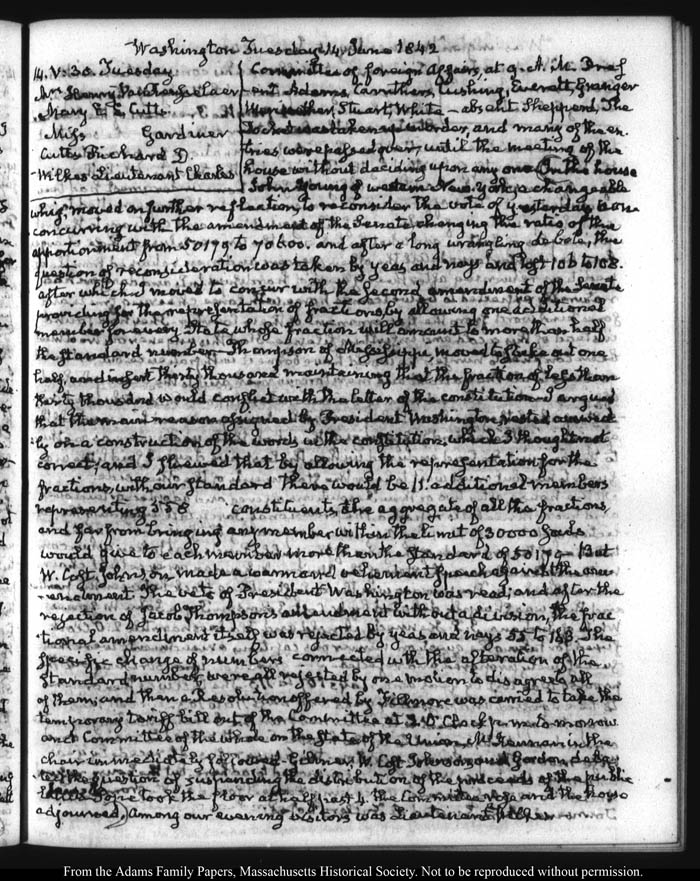 Washington Tuesday 14. June 1842
14. V: 30. Tuesday
Mrs Henry
Mary E. E. Cutts.
Miss Gardiner
Cutts Richard D.
Wilkes Lieutenant Charles
Committee of foreign Affairs, at 9. A. M. Pres-
ent Adams, Caruthers, Cushing, Everett, Granger
Meriwether, Stuart, White — absent Shepperd, The
Docket was taken up in order, and many of the en-
tries were passed over, until the meeting of the
house without deciding upon any one. In the house
John Young of western New-York, a changeable
whig, moved on further reflection, to reconsider the vote of yesterday, con-
concurring with the amendment of the Senate changing the ratio of the
apportionment from 50179 to 70600. and after a long wrangling debate, the
question of reconsideration was taken by yeas and nays and lost 106 to 108.
after which I moved to concur with the second amendment of the Senate
providing for the representation of fractions, by allowing one additional
member for every State whose fraction will amount to more than half
the standard number — Thompson of Mississippi, moved to strike out one
half, and insert thirty thousand maintaining that the fraction of less than
thirty thousand would conflict with the letter of the constitution — I argued
that the main reason assigned by President Washington rested
ly on a construction of the words in the constitution, which I thought not
correct; and I shewed that by allowing the representation for the
fractions, with our standard there would be additional members
representing 558 constituents, the aggregate of all the fractions,
and far from bringing any member within the limit of 30000 Souls
would give to each member more than the Standard of 50179 — But
W. Cost Johnson made a warm and vehement speech against the
amendment The veto of President Washington was read; and after the
rejection of Jacob Thompson's amendment without a division, the frac
tional amendment itself was rejected by yeas and nays 55 to 153. The
specific change of numbers connected with the alteration of the
Standard number were all rejected by one motion to disagree to all
of them; and then a Resolution offered by Fillmore was carried to take the
temporary tariff bill out of the Committee at 3. O'Clock p. m. to-morrow
and Committee of the whole on the State of the Union, McKennan in the
chair immediately followed — Gilmer, W. Cost Johnson and Gordon, deba-
ted the question of suspending the distribution of the proceeds of the public
lands. Pope took the floor at half past 4. the Committee rose and the house
adjourned. Among our evening visitors was Lieutenant Wilkes
From the Adams Family Papers, Massachusetts Historical Society. Not to be reproduced without permission.